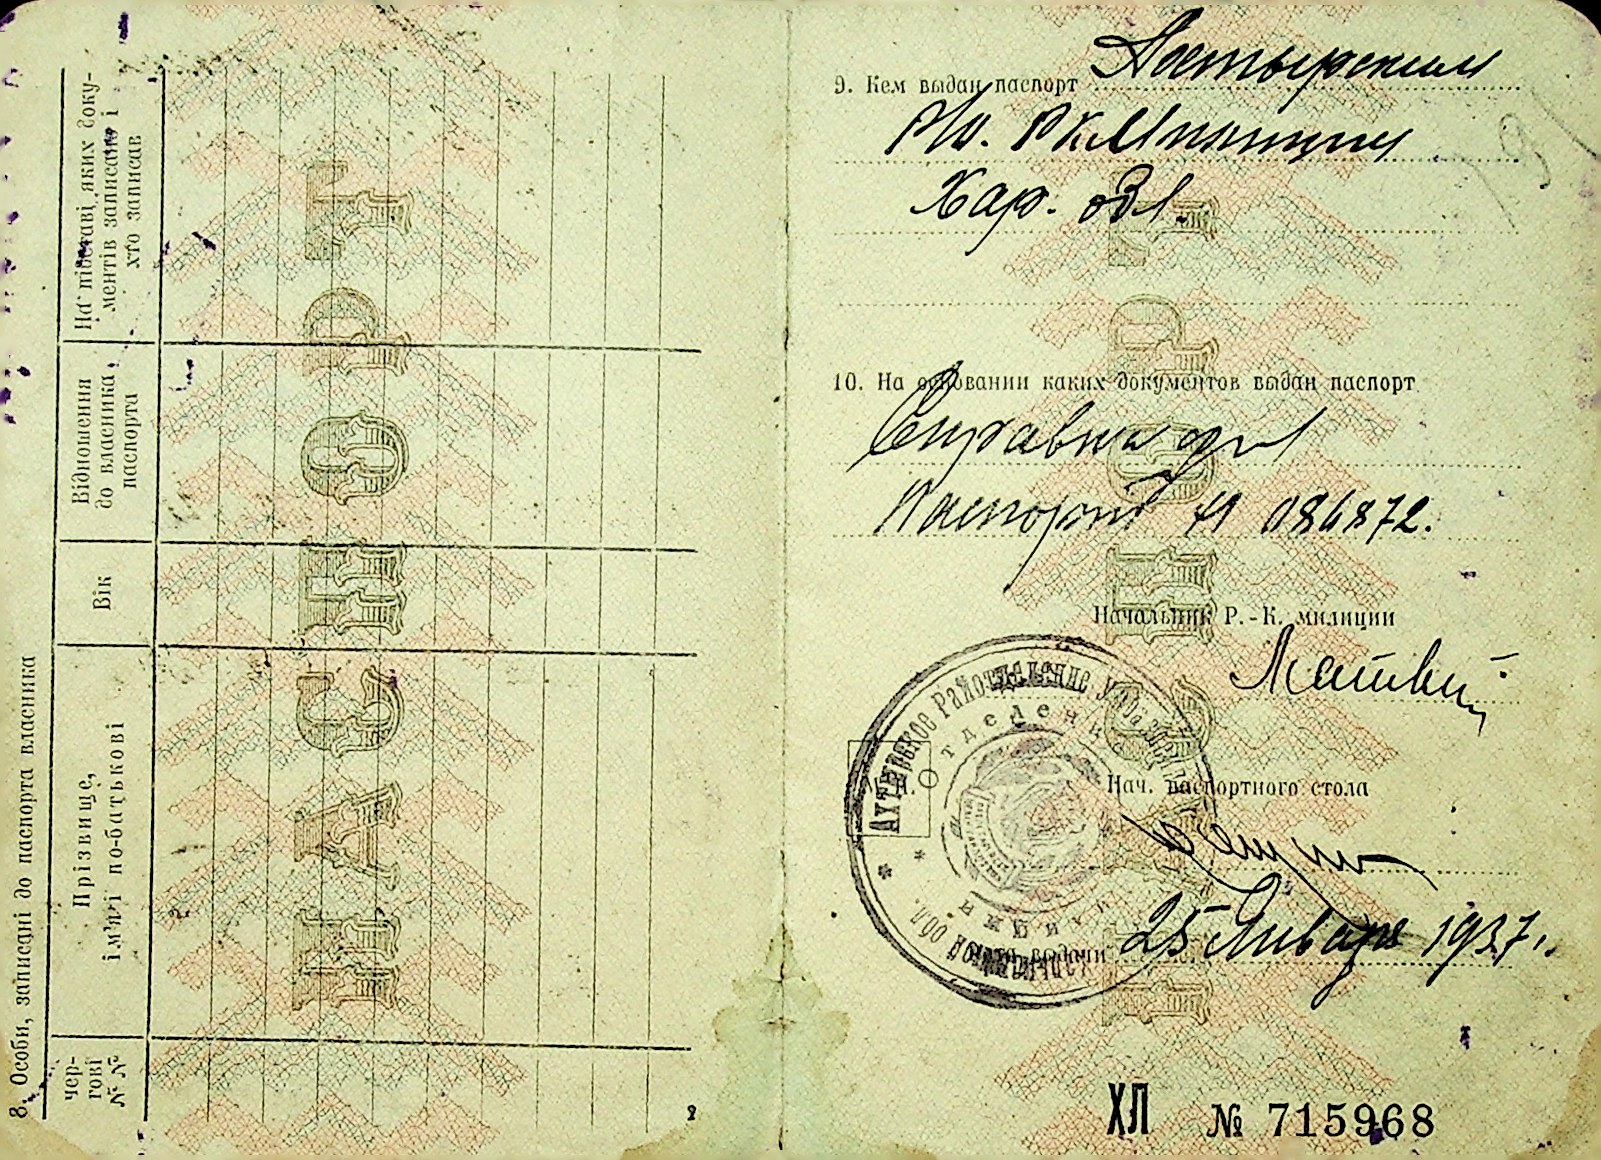 8. Особи, записані до паспорта власника
чер-
гові
№ №
Прізвище,
ім'я і по-батькові
Вік
Відношення
до власника
паспорта
На підставі яких доку-
ментів записано і
хто записав
ПАСПОРТ
2
9. Кем выдан паспорт
Р.К. Милиции
Хар. обл.
10. На основании каких документов выдан паспорт
Справка
Паспорт
Начальник Р.-К. милиции
Матвий
Ахтырское Райотделение
Отделение
милиции
обл.
Нач. паспортного стола
Дата выдачи 25 Января 1937 г.
ПАСПОРТ
ХЛ № 715968